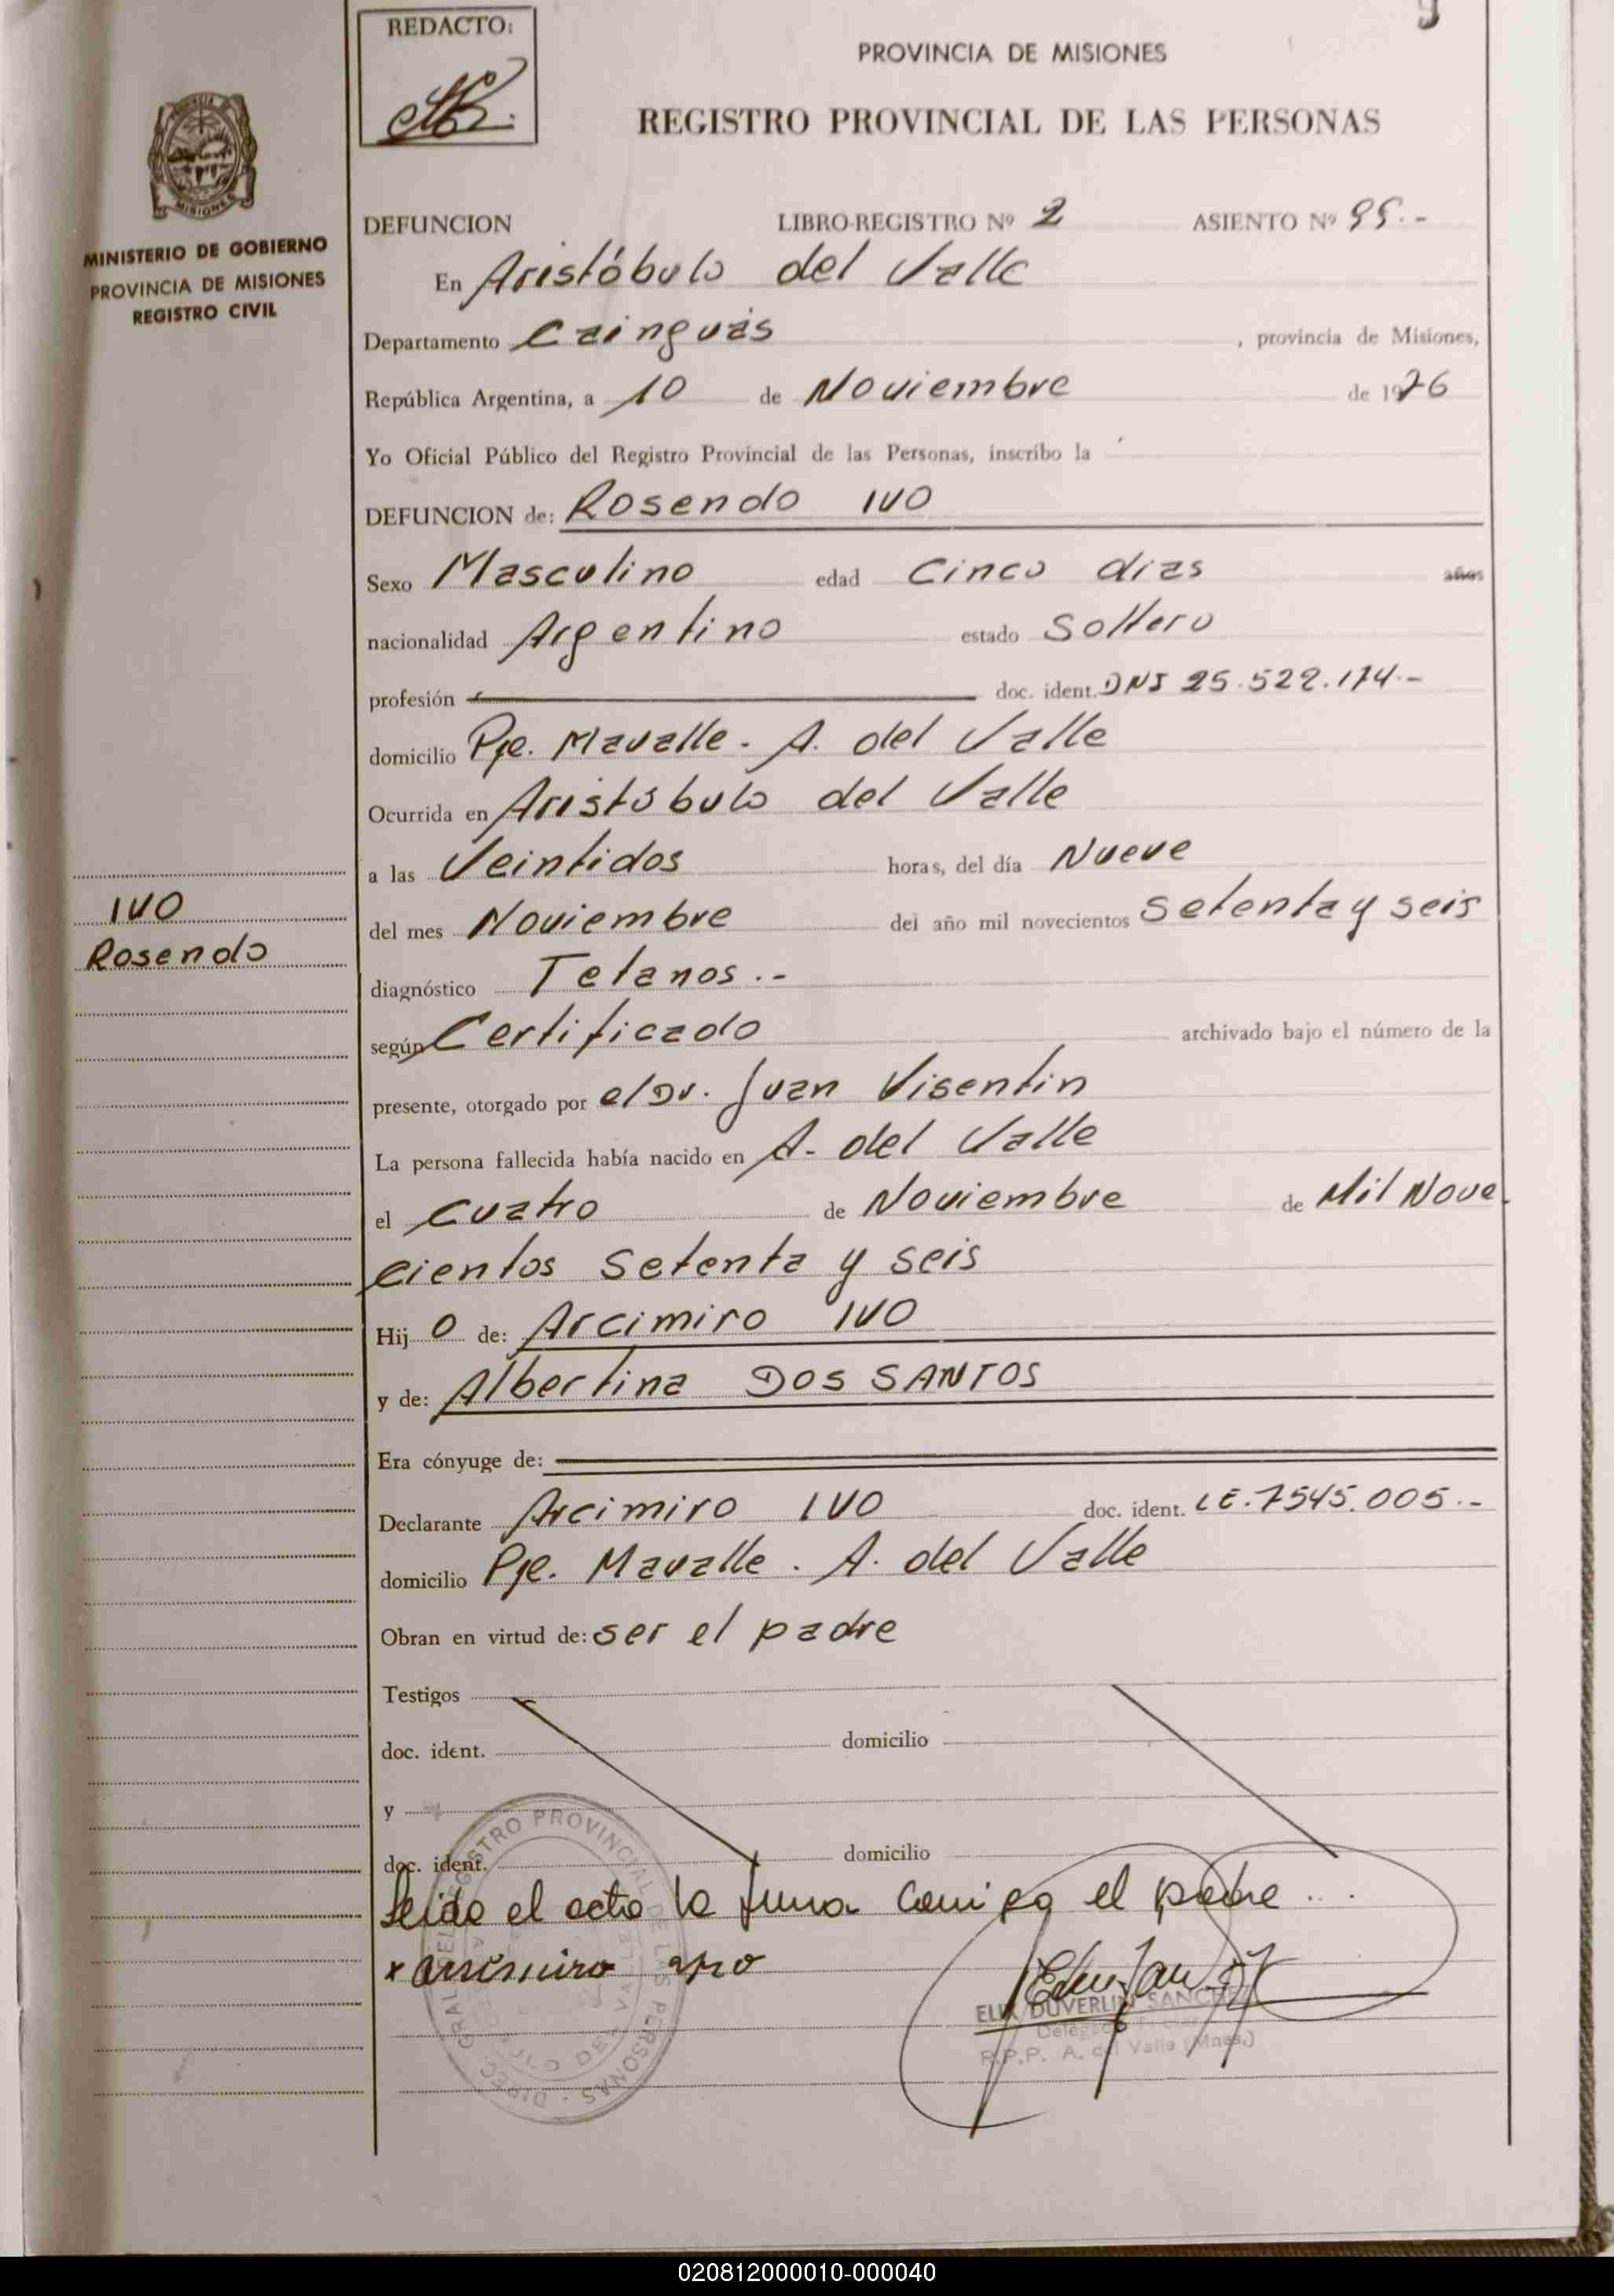 REDACTO:
PROVINCIA DE MISIONES
REGISTRO PROVINCIAL DE LAS PERSONAS
MISIONES
MINISTERIO DE GOBIERNO
PROVINCIA DE MISIONES
REGISTRO CIVIL
DEFUNCION LIBRO-REGISTRO Nº 2 ASIENTO Nº 99.-
En Aristóbulo del Valle
Departamento Cainguás, provincia de Misiones,
República Argentina, a 10 de Noviembre de 1976
Yo Oficial Público del Registro Provincial de las Personas, inscribo la
DEFUNCION de: Rosendo IVO
Sexo Masculino edad Cinco dias años
nacionalidad Argentino estado Soltero
profesión doc. ident. DNI 25.522.174.-
domicilio Pje. Mavalle. A. del Valle
Ocurrida en Aristóbulo del Valle
a las Veintidos horas, del día Nueve
IVO
Rosendo
del mes Noviembre del año mil novecientos Setenta y seis
diagnóstico Tetanos.-
según Certificado archivado bajo el número de la
presente, otorgado por el Dr. Juan Visentin
La persona fallecida había nacido en A. del Valle
el Cuatro de Noviembre de Mil Nove
cientos Setenta y seis
Hij o de: Arcimiro IVO
y de: Albertina DOS SANTOS
Era cónyuge de:
Declarante Arcimiro IVO doc. ident. LE.7545.005.-
domicilio Pje. Mavalle. A. del Valle
Obran en virtud de: ser el padre
Testigos
doc. ident. domicilio
y
doc. ident. domicilio
Leido el acta la firma conmigo el padre...
x arsimiro
DIREC. GRAL DEL REGISTRO PROVINCIAL DE LAS PERSONAS
DUVERLIN SANCHEZ
R.P.P. A. del Valle (Mnes.)
020812000010-000040